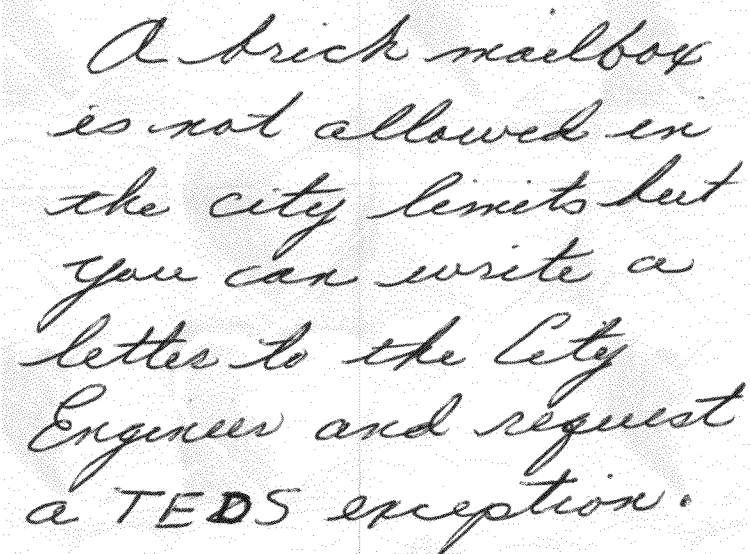 A brick mailbox
is not allowed in
the city limits but
you can write a
letter to the City
Engineer and request
a TEDS exception.